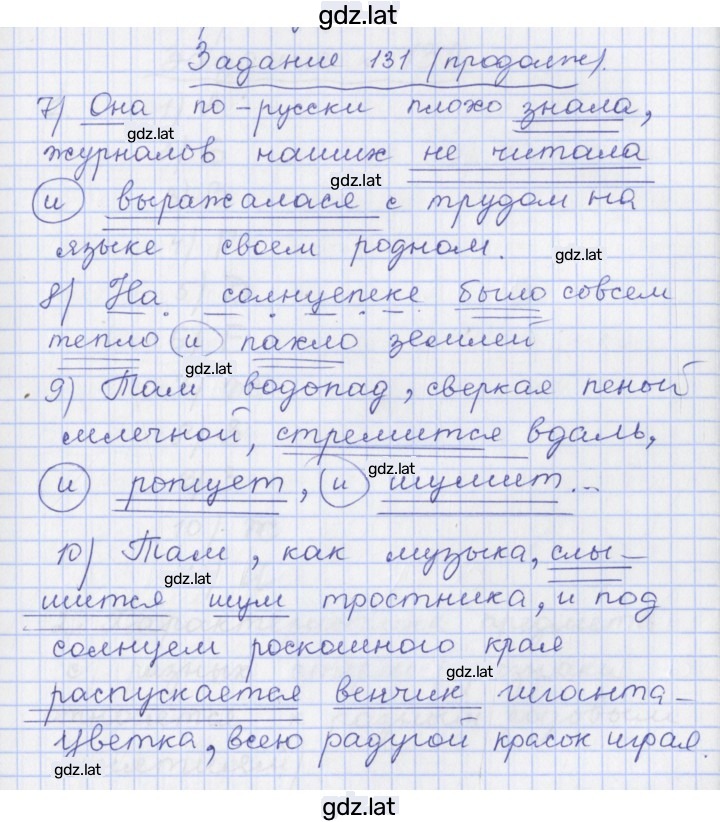 gdz.lat
Задание 131 (продолж).
7) Она по-русски плохо знала,
gdz.lat
журналов наших не читала
gdz.lat
и выражалася с трудом на
языке своем родном.
gdz.lat
8) На солнцепеке было совсем
тепло и пахло землей
gdz.lat
9) Там водопад, сверкая пеной
млечной, стремится вдаль,
gdz.lat
и ропщет, и шумит...
10) Там, как музыка, слы-
gdz.lat
шится шум тростника, и под
солнцем роскошного края
gdz.lat
распускается венчик гиганта-
цветка, всею радугой красок играя.
gdz.lat
gdz.lat